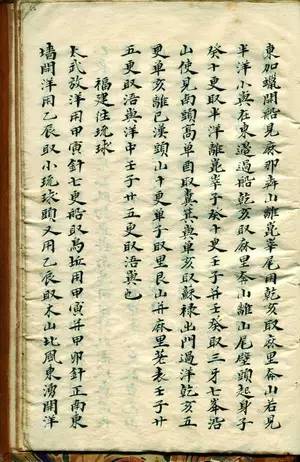 東加蠟開船見麻那奔山離崑峯尾用乾亥取麻里荅山若見
半洋小嶼在東邊過船乾亥取麻里荅山離山尾壁頭起身子
癸十更取半洋離崑峯子癸十更壬子并壬癸取三牙七峯沿
山使見南頭高單酉取箕嶼單亥取蘇祿出門過洋乾亥五
更單亥離巳漢頭山十更單子取里艮山并麻里荖表壬子廿
五更取浯嶼洋中壬子廿五更取浯嶼也
福建往琉球
太武放洋用甲寅針七更船取烏坵用甲寅并甲卯針正南東
墻開洋用乙辰取小琉球頭又用乙辰取木山北風東湧開洋